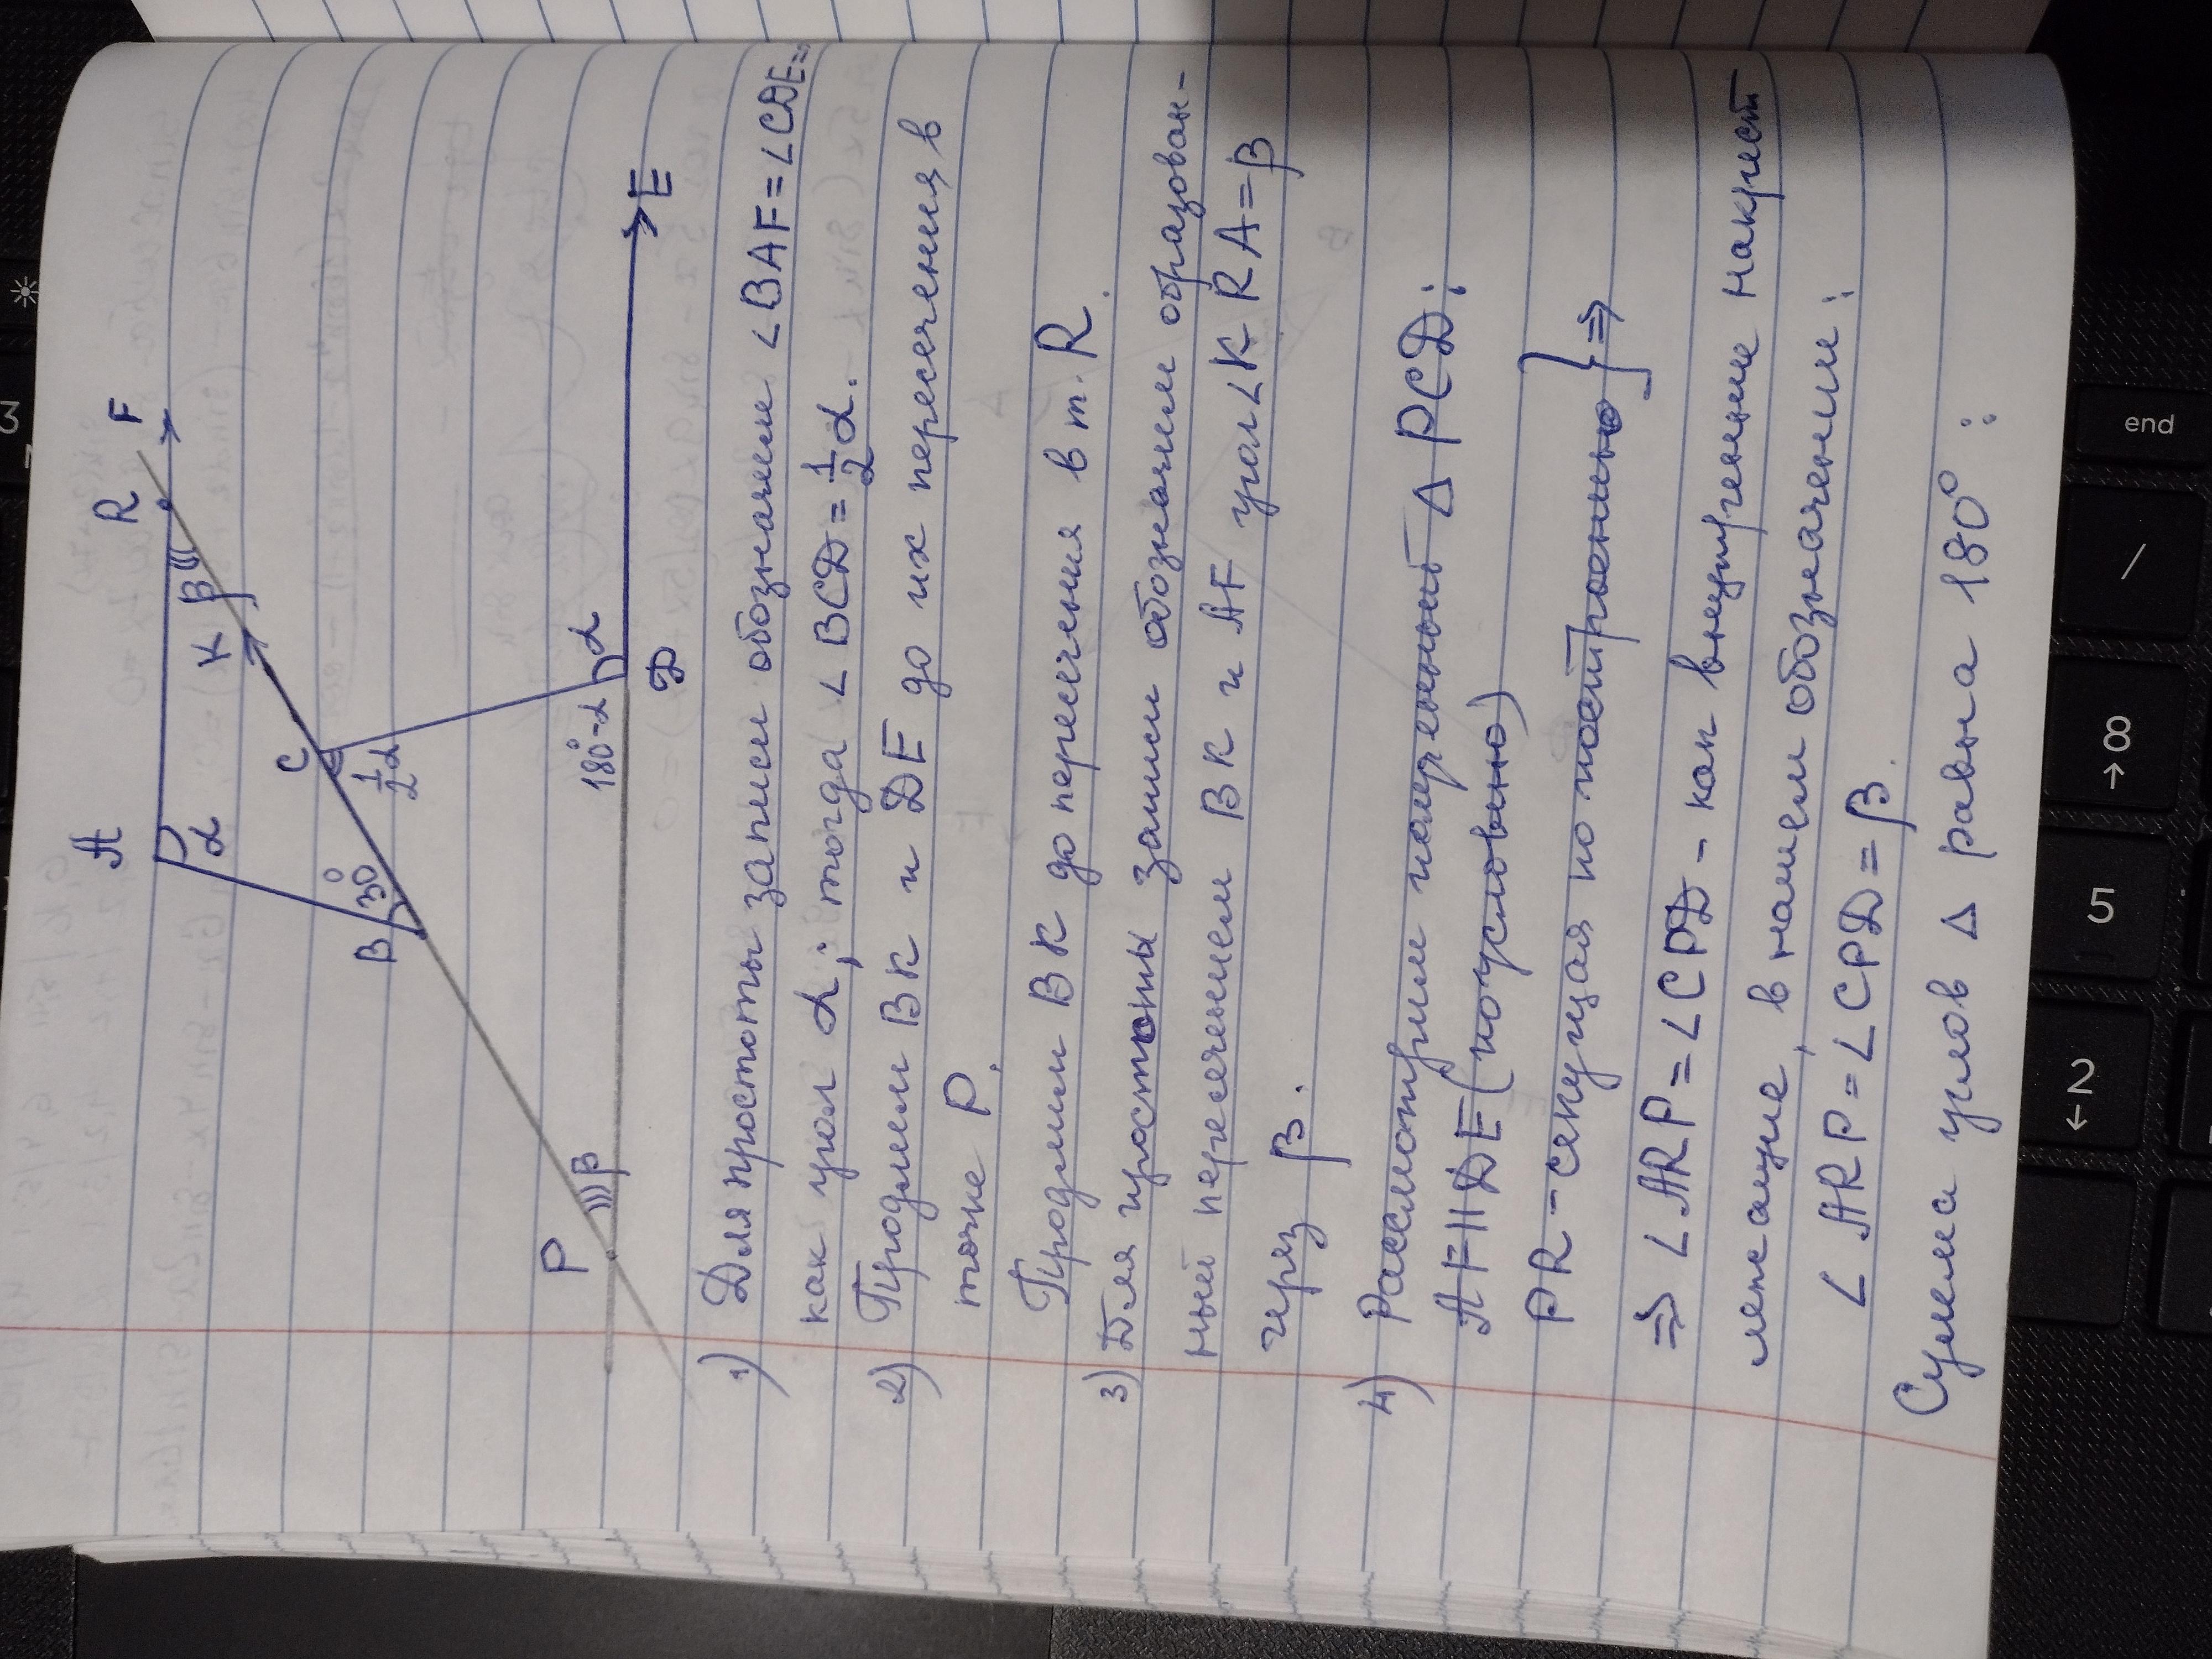 A
R
F
α
β
K
C
B
30°
½α
180°-α
α
P
β
D
E
1) Для простоты записи обозначаем ∠BAF=∠CDE=
как угол α; тогда ∠BCD=½α.
2) Продлим BK и DE до их пересечения в
точке P.
Продлим BK до пересечения в т. R.
3) Для простоты записи обозначаем образован-
ный пересечением BK и AF угол ∠KRA=β
через β.
4) Рассмотрим полученный Δ PCD:
AF||DE (по условию)
PR - секущая по построению } ⇒
⇒ ∠ARP=∠CPD - как внутренние накрест
лежащие, в нашем обозначении:
∠ARP=∠CPD=β.
Сумма углов Δ равна 180°:
3
end
/
8
→
5
2
←